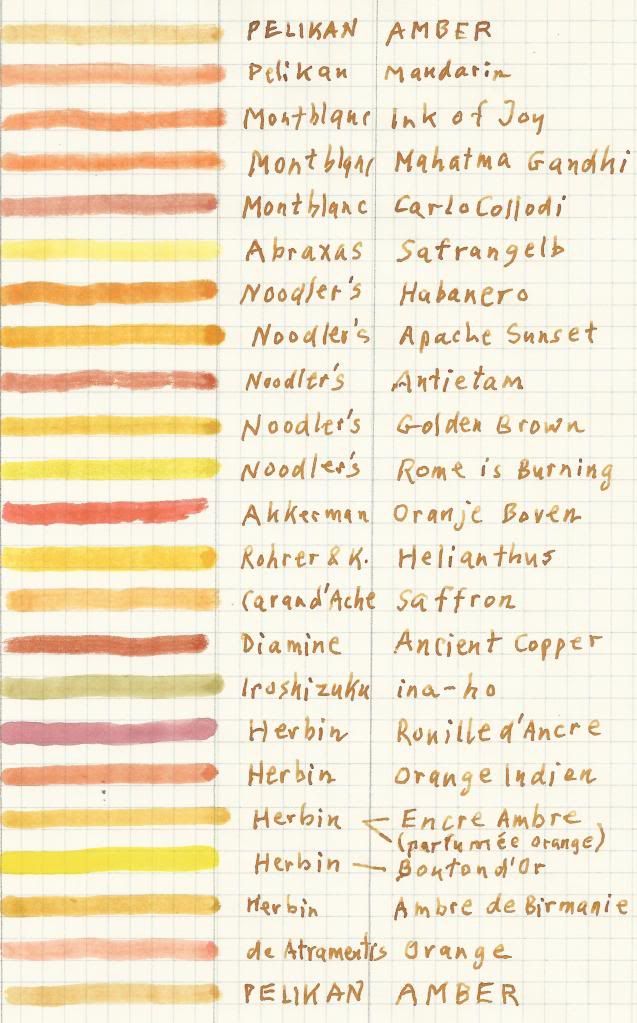 PELIKAN AMBER
Pelikan Mandarin
Montblanc Ink of Joy
Montblanc Mahatma Gandhi
Montblanc Carlo Collodi
Abraxas Safrangelb
Noodler's Habanero
Noodler's Apache Sunset
Noodler's Antietam
Noodler's Golden Brown
Noodler's Rome is Burning
Akkerman Oranje Boven
Rohrer & K. Helianthus
Carand'Ache Saffron
Diamine Ancient Copper
Iroshizuku ina-ho
Herbin Rouille d'Ancre
Herbin Orange Indien
Herbin Encre Ambre
(parfumée orange)
Herbin Bouton d'Or
Herbin Ambre de Birmanie
de Atramentis Orange
PELIKAN AMBER